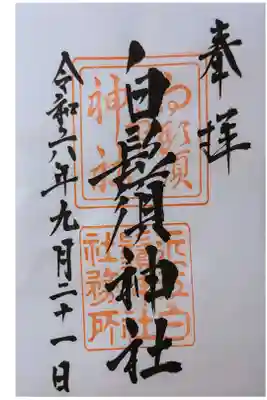 奉拝
白鬚神社
令和六年九月二十一日
白鬚神社
社務所